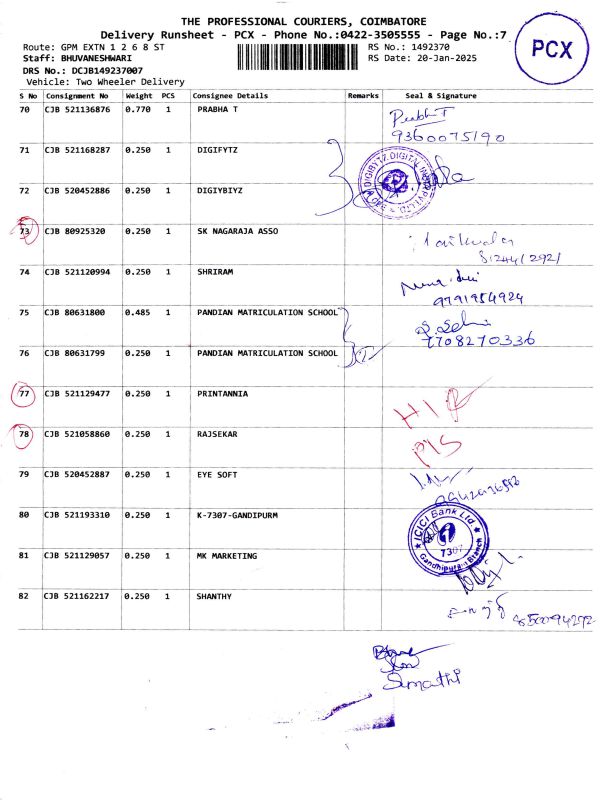 THE PROFESSIONAL COURIERS, COIMBATORE
Delivery Runsheet - PCX - Phone No.:0422-3505555 - Page No.:7
PCX
Route: GPM EXTN 1 2 6 8 ST
RS No.: 1492370
Staff: BHUVANESHWARI
RS Date: 20-Jan-2025
DRS No.: DCJB149237007
Vehicle: Two Wheeler Delivery
S No Consignment No Weight PCS Consignee Details Remarks Seal & Signature
70 CJB 521136876 0.770 1 PRABHA T Prabhu T
9360075190
71 CJB 521168287 0.250 1 DIGIFYTZ
72 CJB 520452886 0.250 1 DIGIYBIYZ
73 CJB 80925320 0.250 1 SK NAGARAJA ASSO
74 CJB 521120994 0.250 1 SHRIRAM
9791954924
75 CJB 80631800 0.485 1 PANDIAN MATRICULATION SCHOOL S. Selvi
7708270336
76 CJB 80631799 0.250 1 PANDIAN MATRICULATION SCHOOL
77 CJB 521129477 0.250 1 PRINTANNIA
78 CJB 521058860 0.250 1 RAJSEKAR P/S
79 CJB 520452887 0.250 1 EYE SOFT
80 CJB 521193310 0.250 1 K-7307-GANDIPURM
ICICI Bank Ltd
7307
Gandhipuram Branch
81 CJB 521129057 0.250 1 MK MARKETING
82 CJB 521162217 0.250 1 SHANTHY
850094272
Sumathi